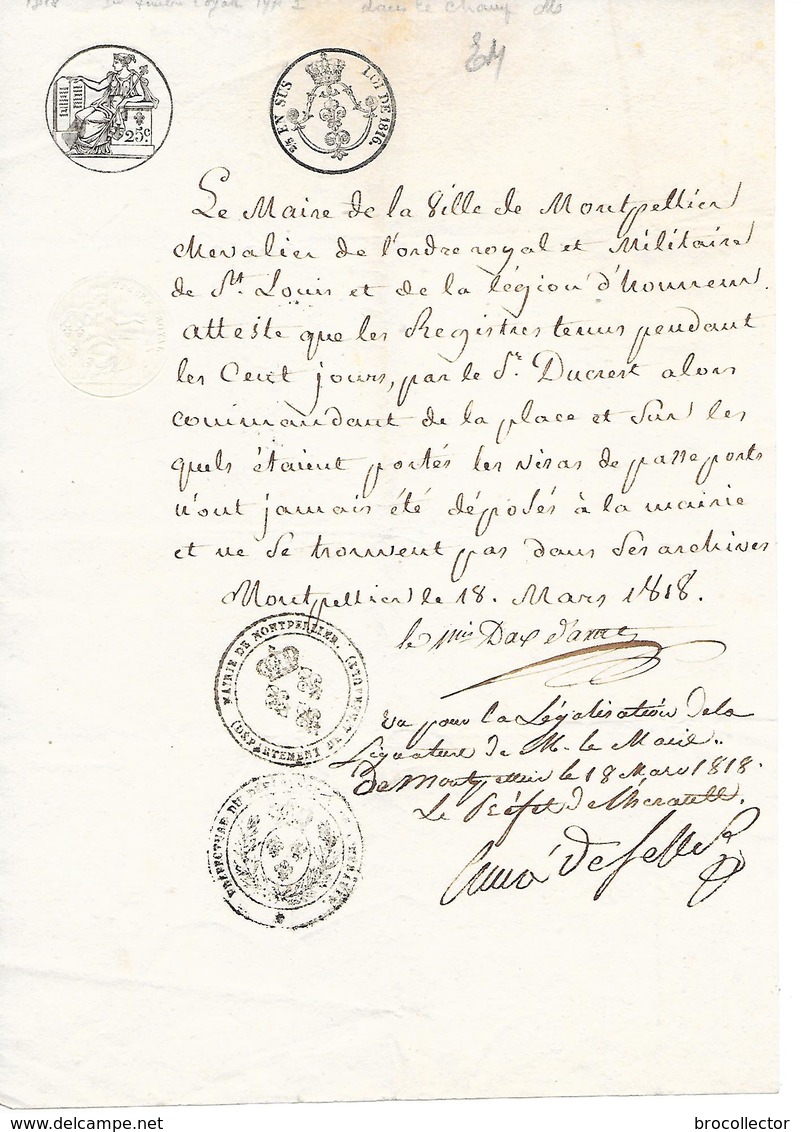 1818
dans le champ
EM
25c
2/5 EN SUS LOI DE 1816.
Le Maire de la Ville de Montpellier
chevalier de l'ordre royal et Militaire
de St. Louis et de la légion d'honneur.
atteste que les Registres tenus pendant
les Cent jours, par le Sr. Ducrest alors
commandant de la place et sur les
quels étaient portés les visas de passeports
n'ont jamais été déposés à la mairie
et ne se trouvent pas dans ses archives
Montpellier le 18. Mars 1818.
le Mis Dax d'axat
MAIRIE DE MONTPELLIER. (DÉPARTEMENT DE L'HÉRAULT)
Vu pour la Légalisation de la
Signature de M. le Maire
de Montpellier le 18 Mars 1818.
Le Préfet de l'hérault.
PRÉFECTURE DU DÉPARTEMENT DE L'HÉRAULT
Creuzé de Lesser
© Delcampe.net
brocollector